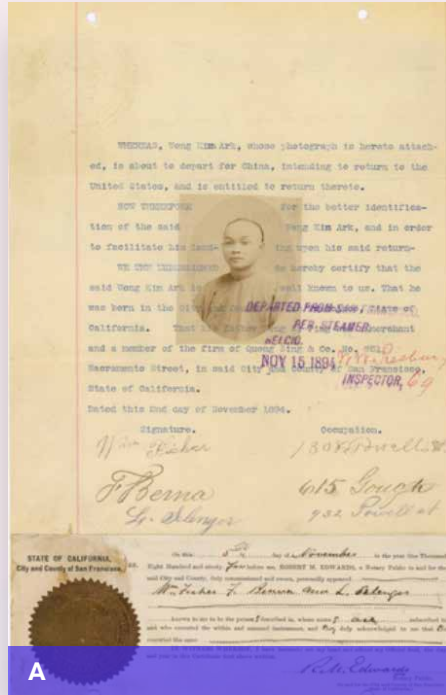 WHEREAS, Wong Kim Ark, whose photograph is hereto attach-
ed, is about to depart for China, intending to return to the
United States, and is entitled to return thereto.
NOW THEREFORE for the better identifica-
tion of the said Wong Kim Ark, and in order
to facilitate his land- ing upon his said return-
WE THE UNDERSIGNED do hereby certify that the
said Wong Kim Ark is well known to us. That he
was born in the City and State of
California. That his father merchant
and a member of the firm of Quong Sing & Co. No. 751
Sacramento Street, in said City and County of San Francisco,
State of California.
Dated this 2nd day of November 1894.
DEPARTED FROM SAN
PER STEAMER,
BELGIC.
NOV 15 1894
INSPECTOR, 69
Signature. Occupation.
Wm Fisher Powell St
F Berna 615 Gough
L. Selenger 932 Powell st
STATE OF CALIFORNIA,
City and County of San Francisco,
On this 5th day of November in the year One Thousand
Eight Hundred and ninety four before me, ROBERT M. EDWARDS, a Notary Public in and for the
said City and County, duly commissioned and sworn, personally appeared
Wm Fisher F. Berna and L. Selenger
known to me to be the person s described in, whose name s are subscribed to
and who executed the within and annexed instrument, and they duly acknowledged to me that
executed the same
R.M. Edwards
A